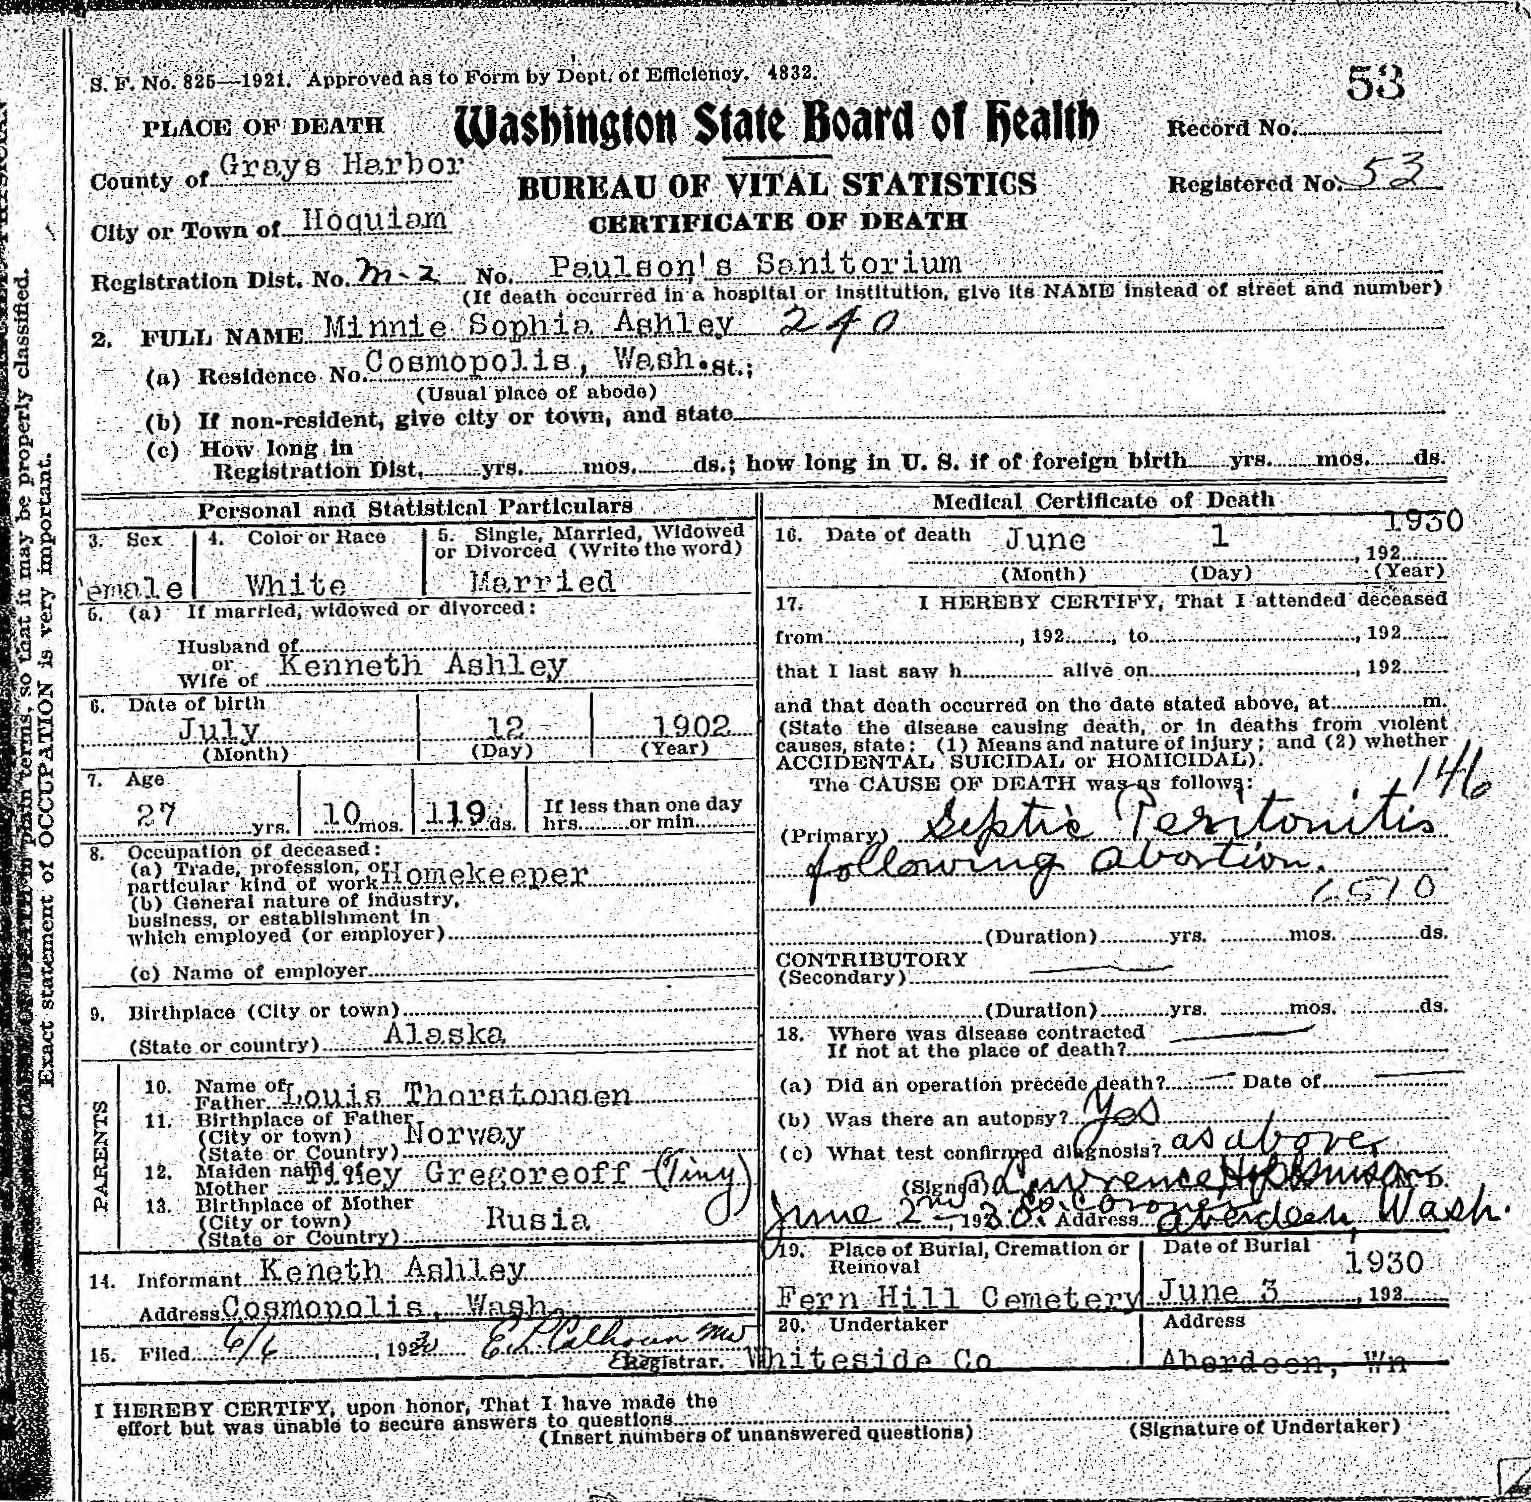 S. F. No. 825—1921. Approved as to Form by Dept. of Efficiency. 4832.
53
PLACE OF DEATH
Washington State Board of Health
Record No.
County of Grays Harbor
BUREAU OF VITAL STATISTICS
Registered No. 53
City or Town of Hoquiam
CERTIFICATE OF DEATH
Registration Dist. No. M-2 No. Paulson's Sanitorium
(If death occurred in a hospital or institution, give its NAME instead of street and number)
2. FULL NAME Minnie Sophia Ashley 240
(a) Residence No. Cosmopolis, Wash. St.;
(Usual place of abode)
(b) If non-resident, give city or town, and state
(c) How long in
Registration Dist. yrs. mos. ds.; how long in U. S. if of foreign birth yrs. mos. ds.
Personal and Statistical Particulars
3. Sex 4. Color or Race 5. Single, Married, Widowed
or Divorced (Write the word)
emale White Married
5. (a) If married, widowed or divorced:
Husband of
or
Wife of Kenneth Ashley
6. Date of birth
July 12 1902
(Month) (Day) (Year)
7. Age
27 yrs. 10 mos. 119 ds. If less than one day
hrs. or min.
8. Occupation of deceased:
(a) Trade, profession, or
particular kind of work Homekeeper
(b) General nature of industry,
business, or establishment in
which employed (or employer)
(c) Name of employer
9. Birthplace (City or town)
(State or country) Alaska
PARENTS
10. Name of
Father Louis Thorstonsen
11. Birthplace of Father
(City or town) Norway
(State or Country)
12. Maiden name of
Mother Gregoreoff (Tiny)
13. Birthplace of Mother
(City or town) Rusia
(State or Country)
14. Informant Keneth Ashley
Address Cosmopolis, Wash.
15. Filed 6/6, 1930 E. L. Calhoun MD
Registrar.
Medical Certificate of Death
16. Date of death June 1 1930
, 192
(Month) (Day) (Year)
17. I HEREBY CERTIFY, That I attended deceased
from , 192 , to , 192
that I last saw h alive on , 192
and that death occurred on the date stated above, at m.
(State the disease causing death, or in deaths from violent
causes, state: (1) Means and nature of injury; and (2) whether
ACCIDENTAL SUICIDAL or HOMICIDAL).
146
The CAUSE OF DEATH was as follows:
(Primary) Septic Peritonitis
following abortion.
1510
(Duration) yrs. mos. ds.
CONTRIBUTORY
(Secondary)
(Duration) yrs. mos. ds.
18. Where was disease contracted
If not at the place of death?
(a) Did an operation precede death? Date of
(b) Was there an autopsy? Yes
(c) What test confirmed diagnosis? as above
(Signed) Lawrence M. D.
June 2nd 1930. Address Aberdeen, Wash.
19. Place of Burial, Cremation or
Removal
Fern Hill Cemetery
Date of Burial
1930
June 3, 192
20. Undertaker
Whiteside Co
Address
Aberdeen, Wn
I HEREBY CERTIFY, upon honor, That I have made the
effort but was unable to secure answers to questions
(Insert numbers of unanswered questions)
(Signature of Undertaker)
terms, so that it may be properly classified.
Exact statement of OCCUPATION is very important.